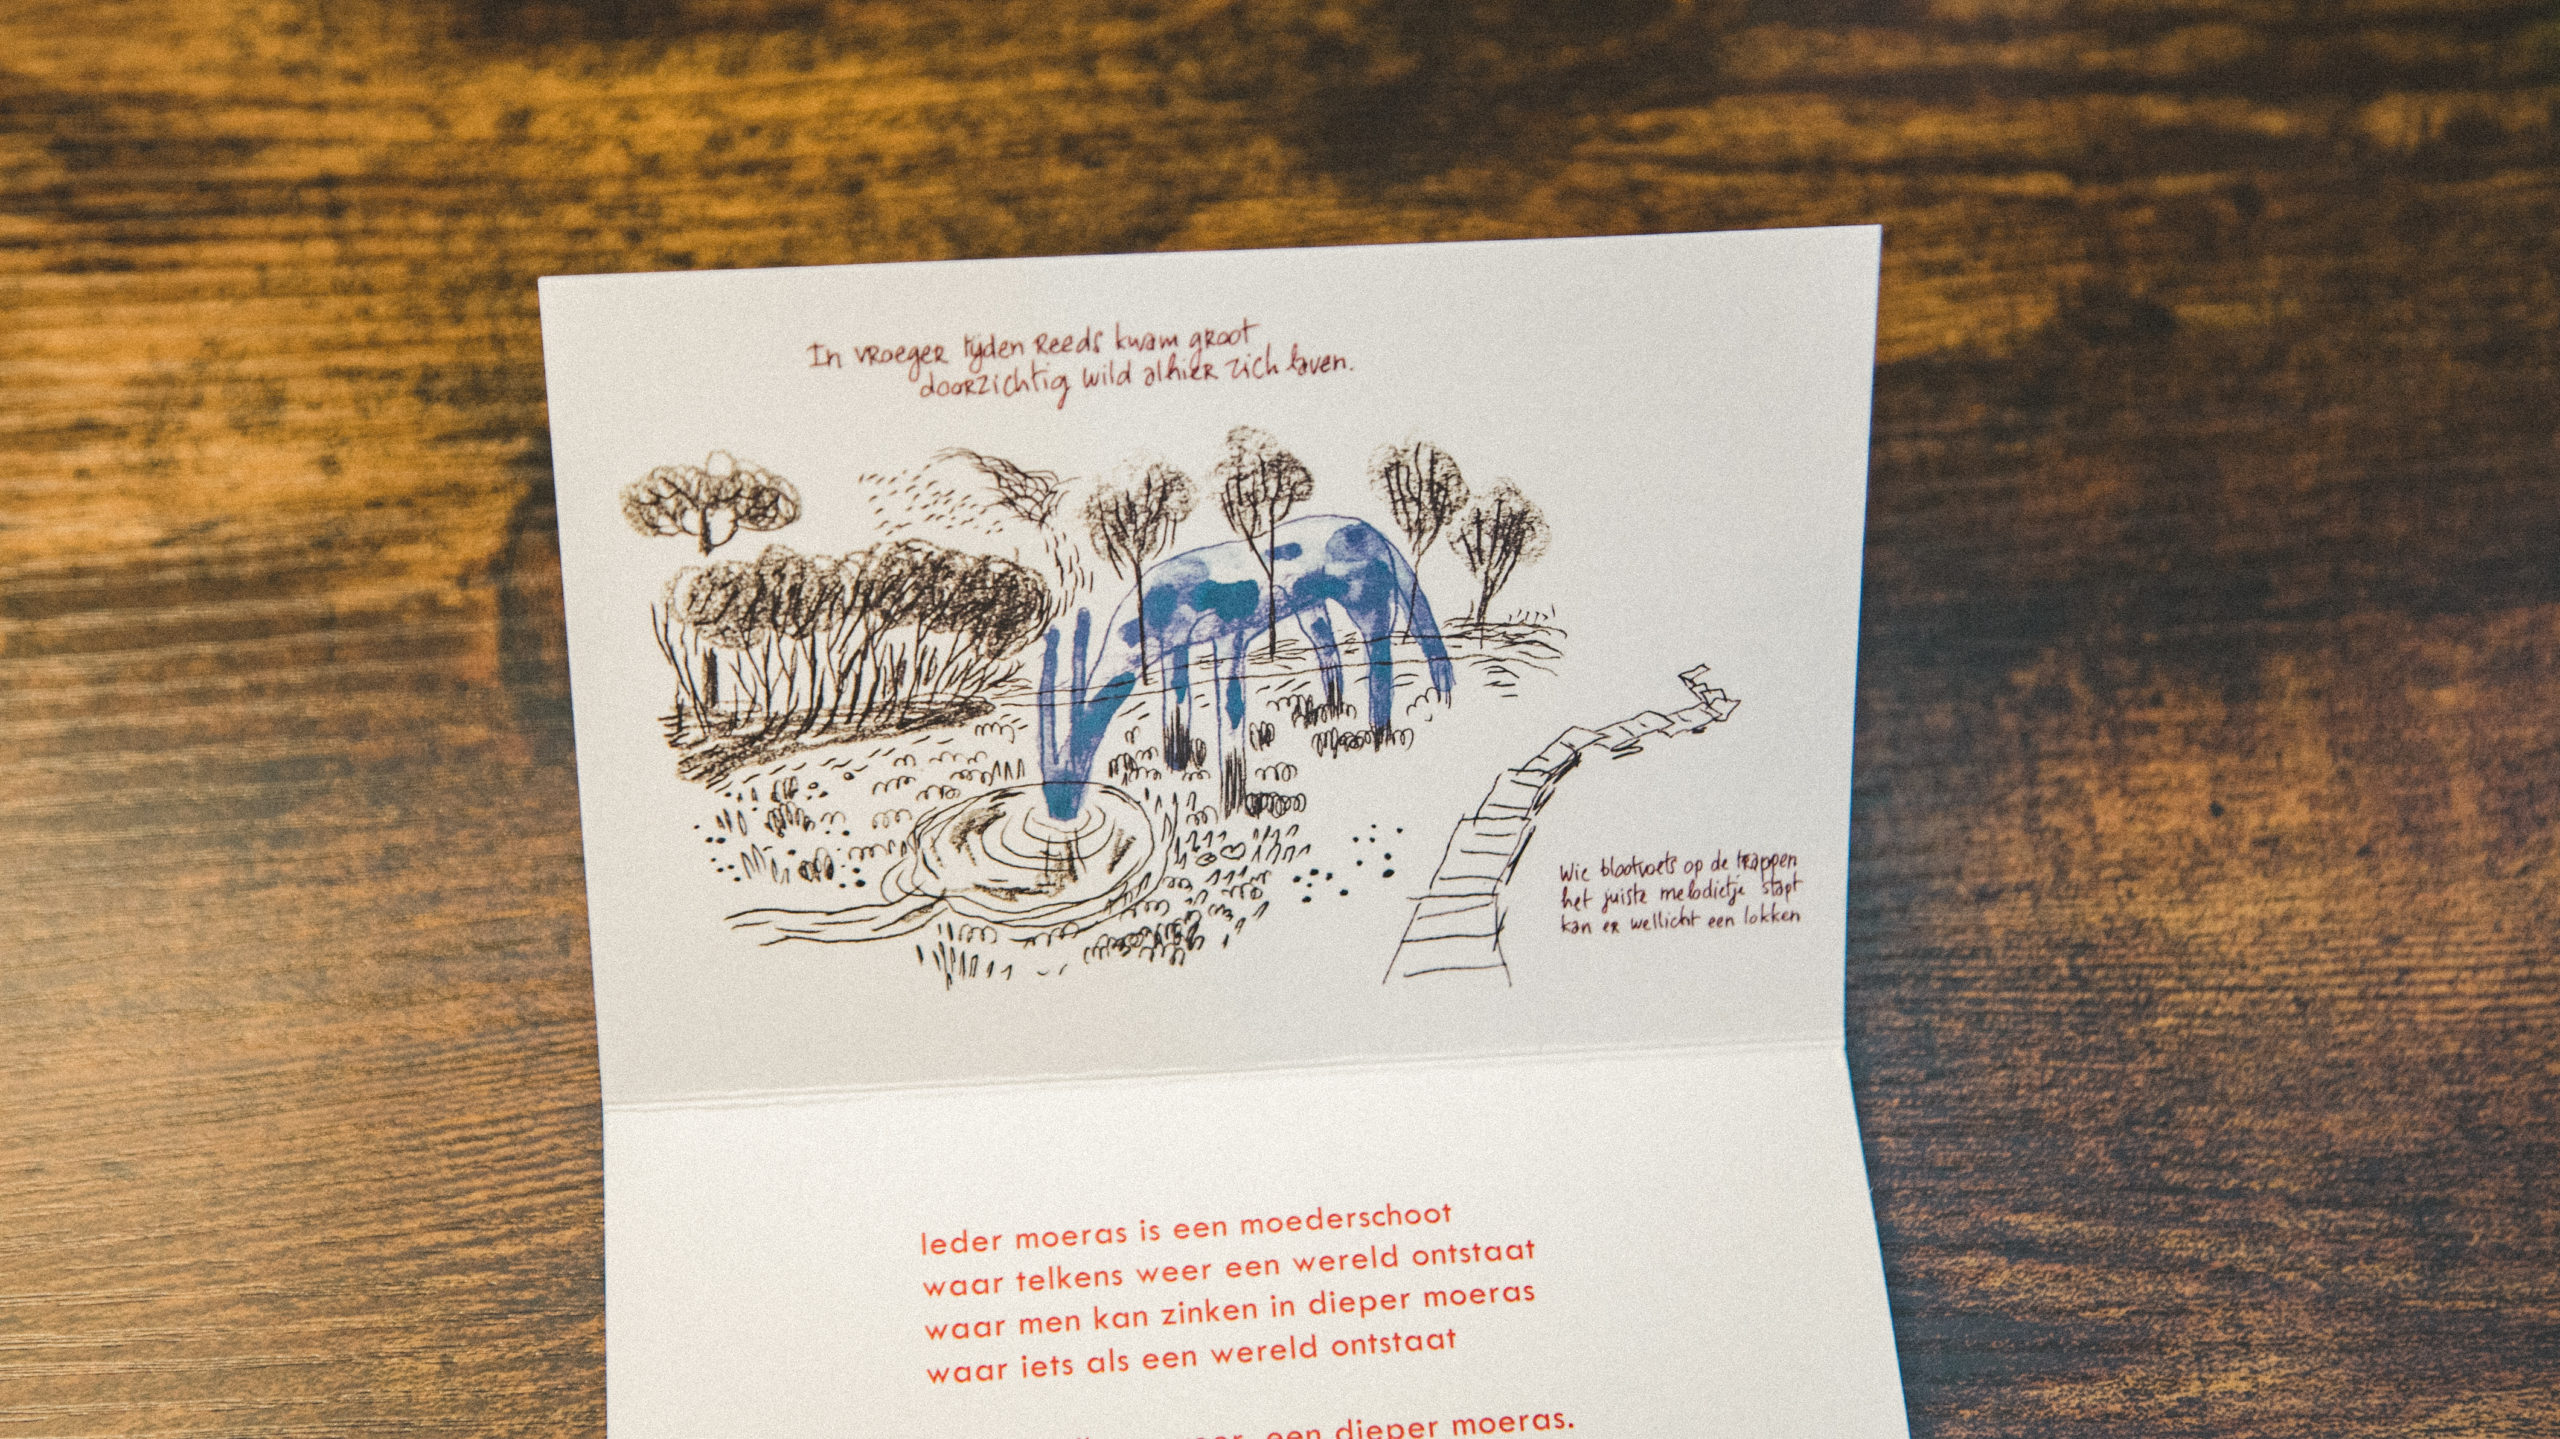 In vroeger tijden reeds kwam groot
doorzichtig wild alhier zich laven.
Wie blootvoets op de trappen
het juiste melodietje stapt
kan er wellicht een lokken
Ieder moeras is een moederschoot
waar telkens weer een wereld ontstaat
waar men kan zinken in dieper moeras
waar iets als een wereld ontstaat
een dieper moeras.